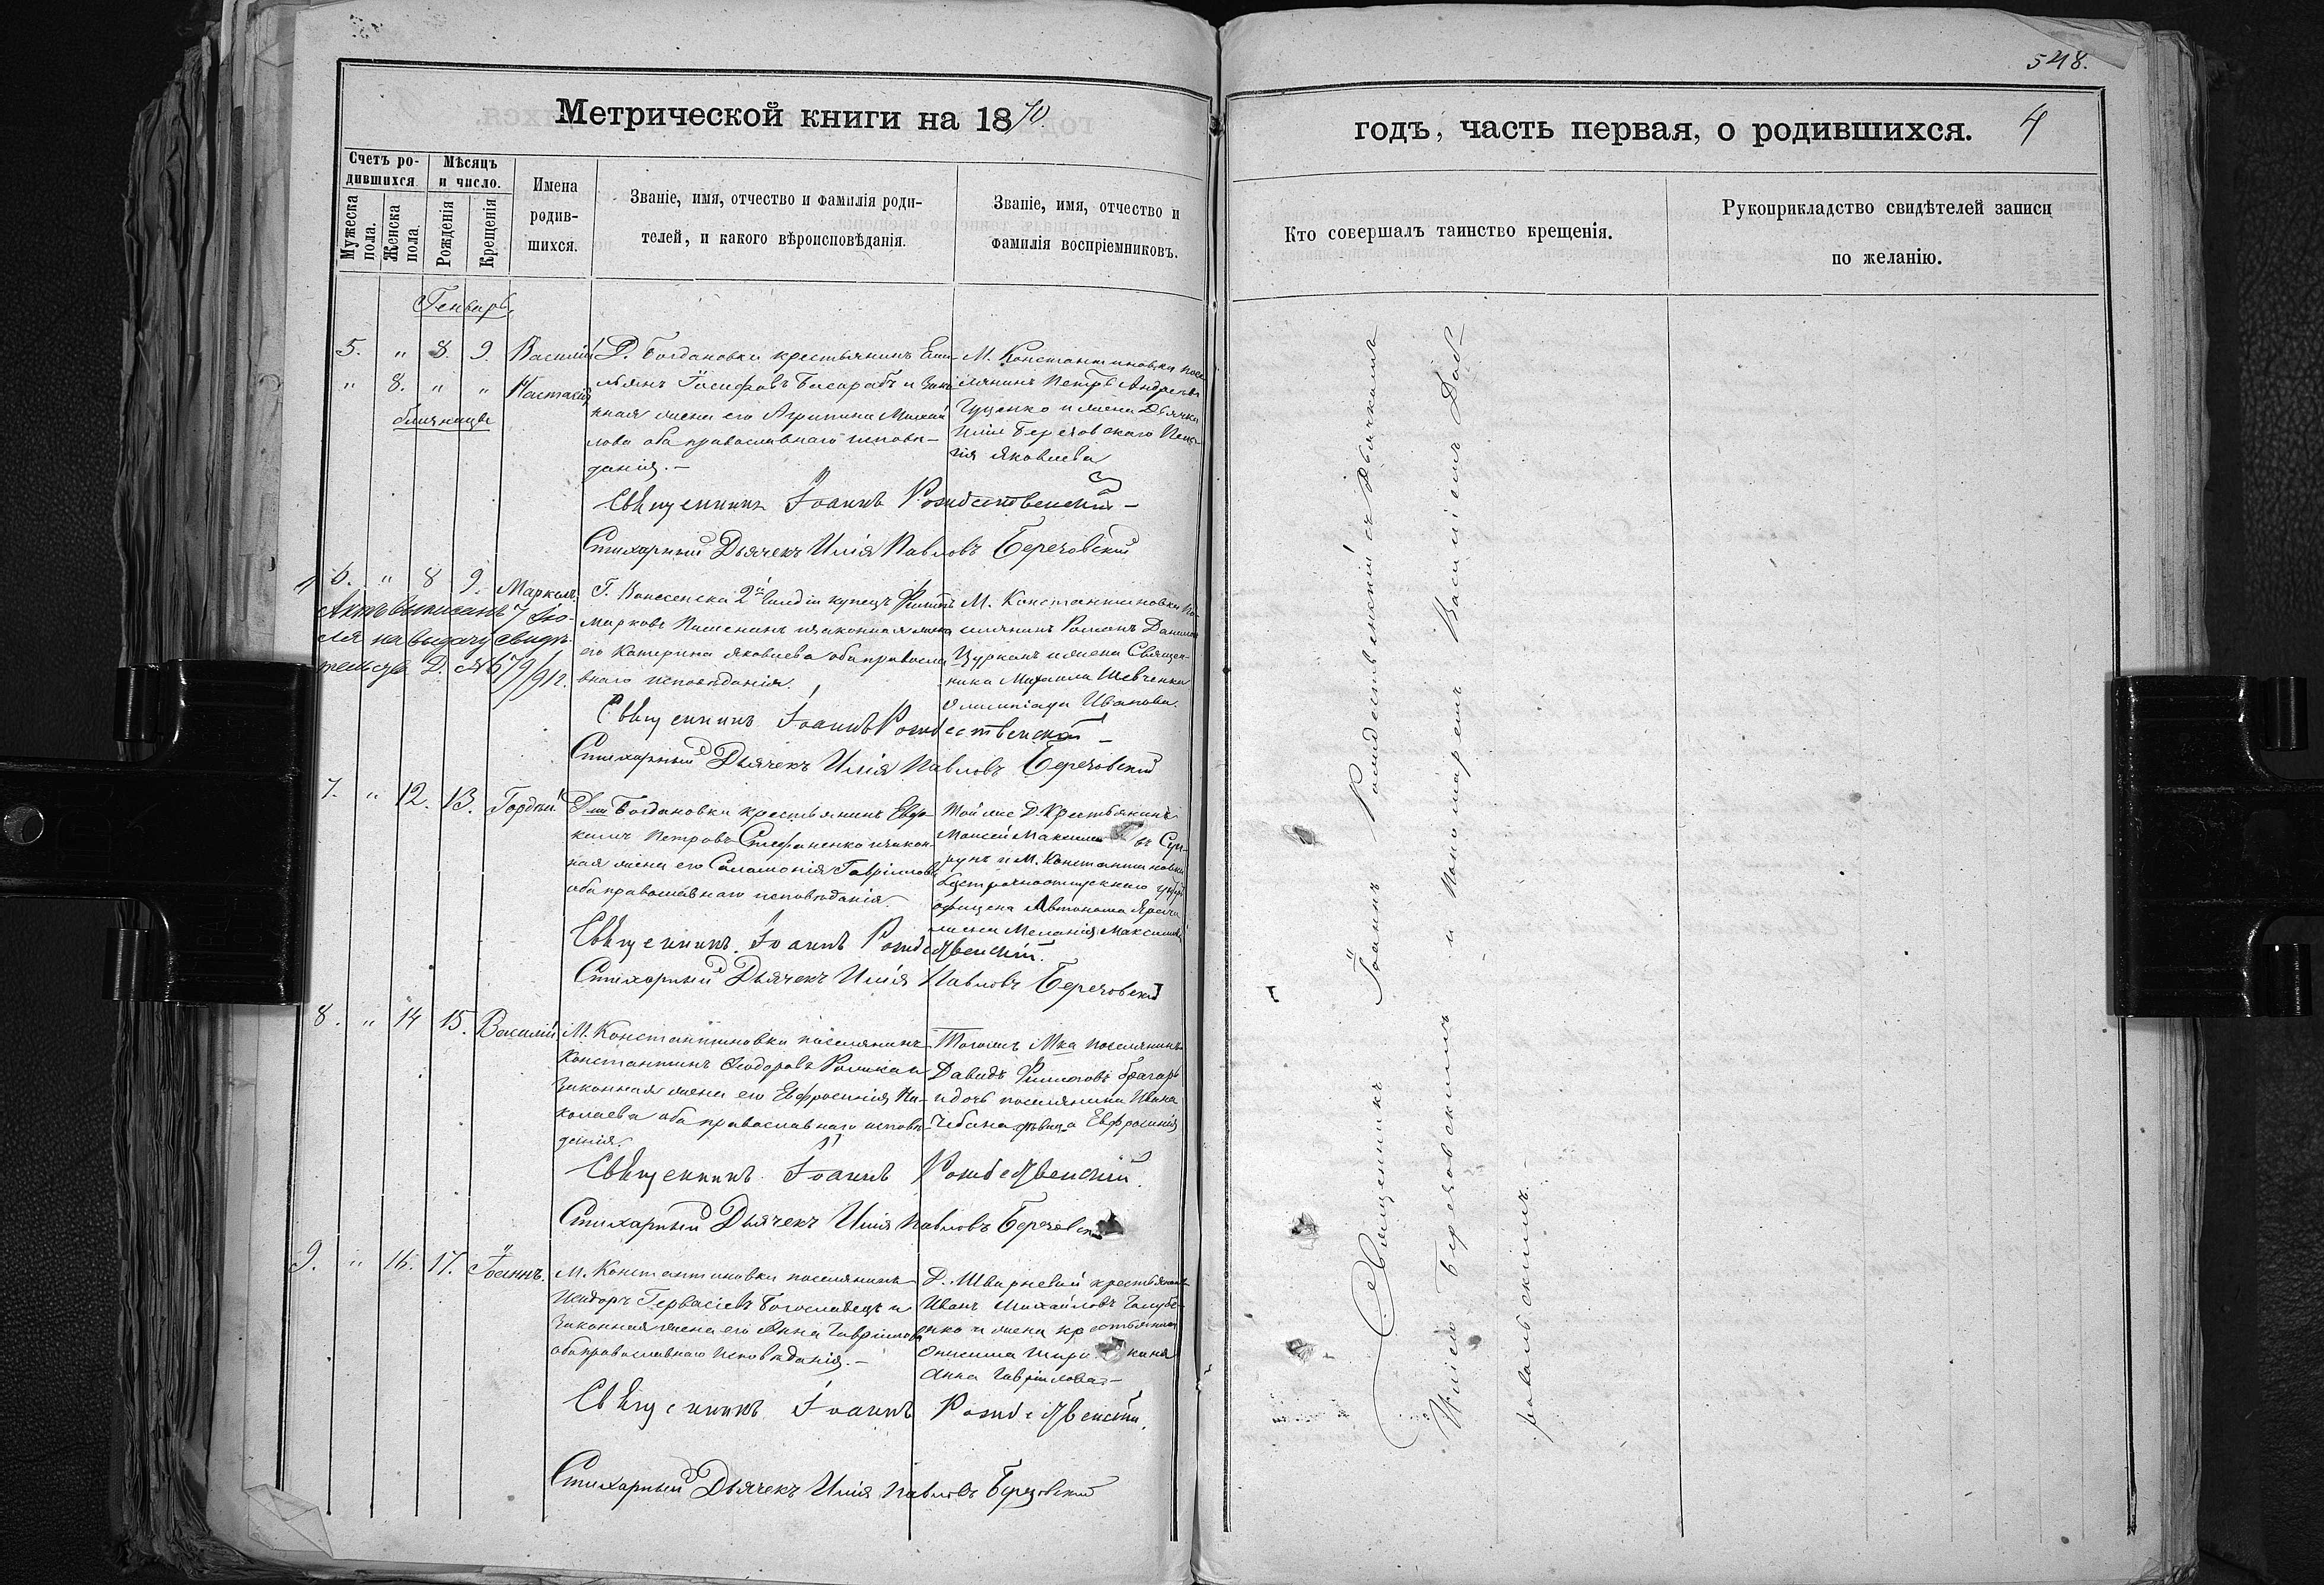 548.
Метрической книги на 1870
годъ, часть первая, о родившихся. 4
Счетъ ро-
дившихся
Мѣсяцъ
и число.
Мужеска
пола.
Женска
пола.
Рожденія
Крещенія
Имена
родив-
шихся.
Званіе, имя, отчество и фамилія роди-
телей, и какого вѣроисповѣданія.
Званіе, имя, отчество и
фамилія воспріемниковъ.
Кто совершалъ таинство крещенія.
Рукоприкладство свидѣтелей записи
по желанію.
Генварь
5. " 8. 9. Василій
" 8. " " Настасія
близнецы
Д. Богдановки крестьянинъ Еми-
льянъ Іосифовъ Басарабъ и зако
нная жена его Агрипина Михай
лова оба православнаго исповѣ-
данія. —
М. Константиновки посе
лянинъ Петръ Андреевъ
Гуценко и жена Дьячка
Иліи Березовскаго
Яковлева
Священникъ Іоаннъ Рождественскій —
Стихарный Дьячекъ Илія Павловъ Березовскій
6. " 8 9. Маркелъ.
Актъ выписанъ 7 Ію-
ля на выдачу свидѣ-
тельства Д. № 679/912.
Г. Вознесенска 2й Гильдіи купецъ Филиппъ
Марковъ и законная жена
его Катерина Яковлева оба правосла
внаго исповѣданія.
М. Константиновки по-
селянинъ Романъ Данилов
Цурканъ и жена Священ-
ника Михаила Шевченка
Олимпіада Иванова
Священникъ Іоаннъ Рождественскій —
Стихарный Дьячекъ Илія Павловъ Березовскій
7. " 12. 13. Гордѣй
Д. Богдановки крестьянинъ Евф-
Петровъ Стефаненко и закон-
ная жена его Саломонія Гавріилова
оба православнаго исповѣданія.
Той же Д. Крестьянинъ
Моисей Максимовъ Суп-
рунъ и М. Константиновки
безсрочноотпускнаго унтеръ
офицера Автонома
жена Меланія Максимова
Священникъ Іоаннъ Рождественскій.
Стихарный Дьячекъ Илія Павловъ Березовскій
8. " 14 15. Василій
М. Константиновки поселянинъ
Константинъ Ѳеодоровъ и
законная жена его Евфросинія Ни-
колаева оба православнаго исповѣ-
данія.
Тогожъ М-ка поселянинъ
Давидъ Филиповъ Брагарь
и дочь поселянина Ивана
Чебана дѣвица Евфросинія
Священникъ Іоаннъ Рождественскій.
Стихарный Дьячекъ Илія Павловъ Березовскій
9. " 16. 17. Іоаннъ.
М. Константиновки поселянинъ
Исидоръ Гервасіевъ Богославецъ и
законная жена его Анна Гавріилова
оба православнаго исповѣданія. —
Д. Шварневой крестьянинъ
Иванъ Михайловъ Голубе-
нко и жена крестьянина
Онисима
Анна Гавріилова —
Священникъ Іоаннъ Рождественскій.
Стихарный Дьячекъ Илія Павловъ Березовскій
Священникъ Іоаннъ Рождественскій съ Дьячкомъ
Иліею Березовскимъ и Пономаремъ Василіемъ Дом-
ровольскимъ. —